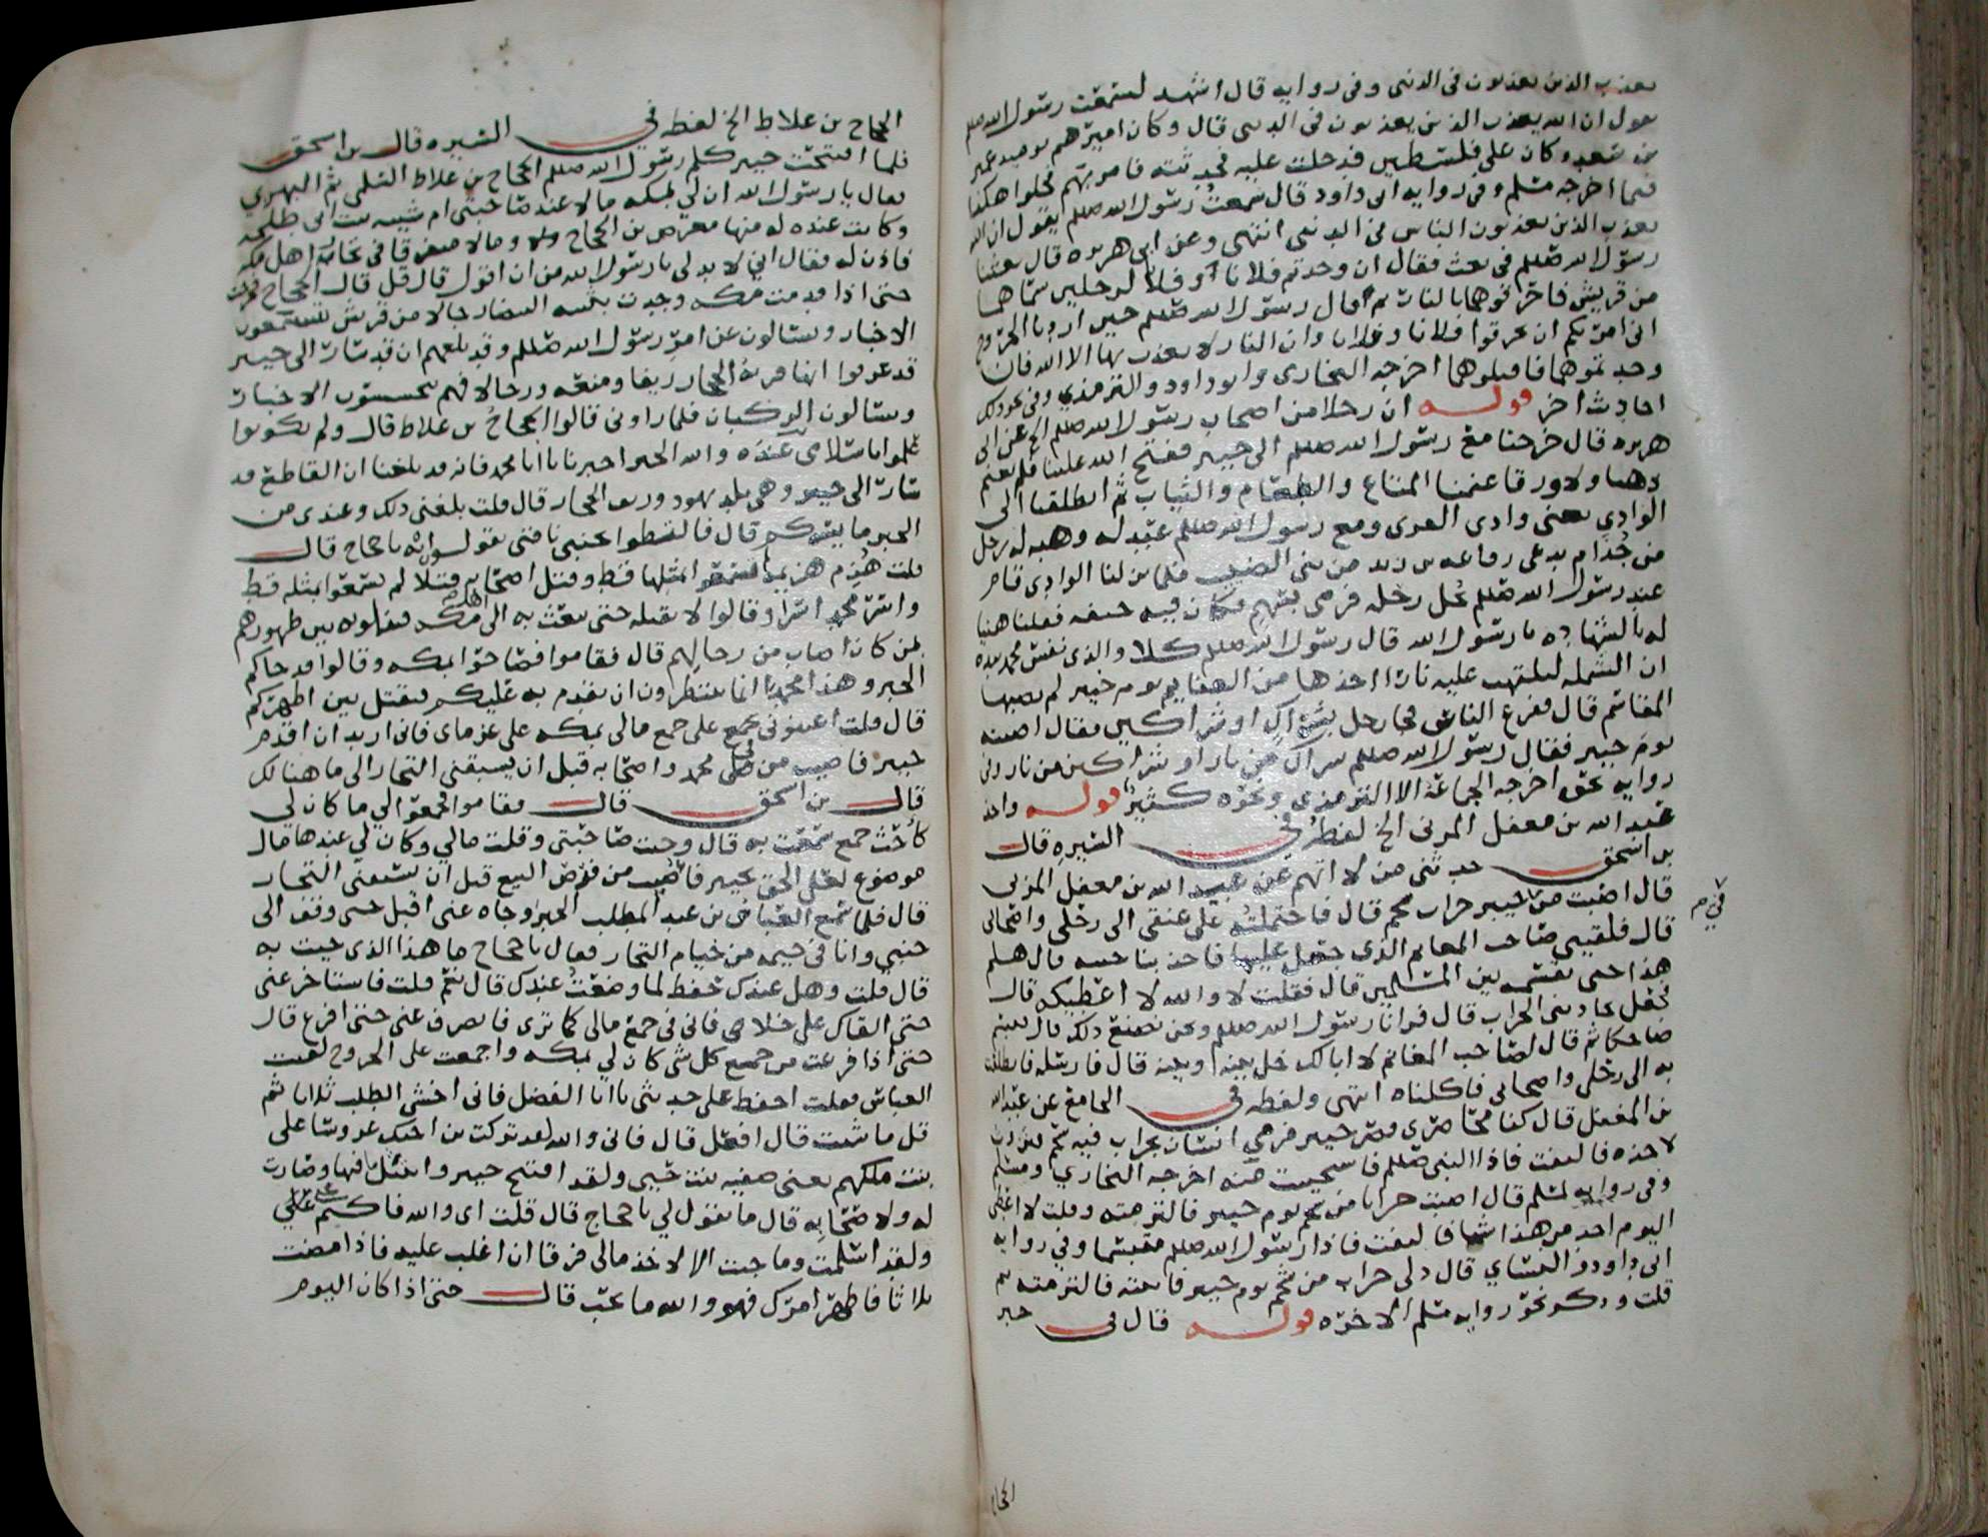 يعذب الذين يعذبون في الدنيى وفي روايه قال اشهد لسمعت رسول الله صللم
يقول ان الله يعذب الذين يعذبون في الدنيى قال وكان اميرهم يوميد عمير
بن سعد وكان على فلسطين فدخلت عليه فحدثته فامر بهم فخلوا هكذا
فيما اخرجه مسلم وفي روايه ابي داود قال سمعت رسول الله صللم يقول ان الله
يعذب الذين يعذبون الناس في الدنيى انتهى وعن ابي هريره قال بعثنا
رسول الله صللم في بعث فقال ان وجدتم فلانا او فلانا لرجلين سماهما
من قريش فاحرقوهما بالنار ثم قال رسول الله صللم حين اردنا الخروج
اني امرتكم ان تحرقوا فلانا وفلانا وان النار لا يعذب بها الا الله فان
وجدتموهما فاقتلوهما اخرجه البخاري وابو داود والترمذي وفي نحو ذلك
احاديث اخر قوله ان رجلا من اصحاب رسول الله صللم الخ عن ابي
هريره قال خرجنا مع رسول الله صللم الى خيبر ففتح الله علينا فلم نغنم
ذهبا ولا ورقا غنمنا المتاع والطعام والثياب ثم انطلقنا الى
الوادي يعني وادي القرى ومع رسول الله صللم عبد له وهبه له رجل
من جذام يدعى رفاعه بن زيد من بني الضبيب فلما نزلنا الوادي قام
عبد رسول الله صللم يحل رحله فرمي بسهم فكان فيه حتفه فقلنا هنيا
له بالشهاده يا رسول الله قال رسول الله صللم كلا والذي نفس محمد بيده
ان الشمله لتلتهب عليه نارا اخذها من الغنايم يوم خيبر لم تصبها
المقاسم قال ففزع الناس فجا رجل بشراك او شراكين فقال اصبته
يوم خيبر فقال رسول الله صللم شراك من نار او شراكين من نار وفي
روايه نحوه اخرجه الجماعة الا الترمذي ونحوه كثير قوله واخذ
عبد الله بن مغفل المزني الخ لفظه في السيره قال
بن اسحق حدثني من لا اتهم عن عبد الله بن مغفل المزني
قال اصبت من خيبر جراب شحم قال فاحتملته على عنقي الى رحلي واصحابي
قال فلقيني صاحب المغانم الذي جعل عليها فاخذ بناحيته قال هلم
هذا حتى نقسمه بين المسلمين قال فقلت لا والله لا اعطيكه قال
فجعل يجاذبني الجراب قال فرانا رسول الله صللم ونحن نصنع ذلك قال فتبسم
ضاحكا ثم قال لصاحب المغانم لا ابالك خل بينه وبينه قال فارسله فانطلقت
به الى رحلي واصحابي فاكلناه انتهى ولفظه في الجامع عن عبد الله
بن المغفل قال كنا محاصري قصر خيبر فرمى انسان بجراب فيه شحم فنزوت
لاخذه فالتفت فاذا النبي صللم فاستحييت منه اخرجه البخاري ومسلم
وفي روايه لمسلم قال اصبت جرابا من شحم يوم خيبر فالتزمته وقلت لا اعطي
اليوم احد من هذا شيا فالتفت فاذا رسول الله صللم متبسما وفي روايه
ابي داود والنساي قال دلي جراب من شحم يوم خيبر فاتيته فالتزمته ثم
قلت وذكر نحو روايه مسلم الاخره قوله قال في خبر
في م
الحجاج
الحجاج بن علاط الخ لفظه في السيره قال بن اسحق
فلما افتتحت خيبر كلم رسول الله صللم الحجاج بن علاط السلمي ثم البهزي
فقال يا رسول الله ان لي بمكه مالا عند صاحبتي ام شيبه بنت ابي طلحه
وكانت عنده له منها معرض بن الحجاج ومالا متفرقا في تجار اهل مكه
فاذن له فقال اني لا بد لي يا رسول الله من ان اقول قال قل قال الحجاج فخرجت
حتى اذا قدمت مكه وجدت بثنيه البيضا رجالا من قريش يستمعون
الاخبار ويسالون عن امر رسول الله صللم وقد بلغهم ان قد سار الى خيبر
قد عرفوا انها قرية الحجاز ريفا ومنعه ورجالا فهم يتحسسون الاخبار
ويسالون الركبان فلما راوني قالوا الحجاج بن علاط قال ولم يكونوا
علموا باسلامي عنده والله الخبر اخبرنا يا ابا محمد فانه قد بلغنا ان القاطع قد
سار الى خيبر وهي بلد يهود وريف الحجاز قال قلت بلغني ذلك وعندي من
الخبر ما يسركم قال فالتبطوا بجنبي ناقتي يقولون ايه يا حجاج قال
قلت هزم هزيمة لم تسمعوا بمثلها قط وقتل اصحابه قتلا لم تسمعوا بمثله قط
واسر محمد اسرا وقالوا لا نقتله حتى نبعث به الى اهل مكه فيقتلوه بين ظهورهم
بمن كان اصاب من رجالهم قال فقاموا فصاحوا بمكه وقالوا قد جاكم
الخبر وهذا محمد انما تنتظرون ان يقدم به عليكم فيقتل بين اظهركم
قال قلت اعينوني بجمع على جمع مالي بمكه على غرماي فاني اريد ان اقدم
خيبر فاصيب من فل محمد واصحابه قبل ان يسبقني التجار الى ما هنالك
قال بن اسحق قال فقاموا فجمعوا لي ما كان لي
كاحث جمع سمعت به قال وجيت صاحبتي وقلت مالي وكان لي عندها مال
موضوع لعلي الحق بخيبر فاصيب من فرص البيع قبل ان يسبقني التجار
قال فلما سمع العباس بن عبد المطلب الخبر وجاه عني اقبل حتى وقف الى
جنبي وانا في خيمه من خيام التجار فقال يا حجاج ما هذا الذي جيت به
قال قلت وهل عندك حفظ لما وضعت عندك قال نعم قلت فاستاخر عني
حتى القاك على خلا فاني في جمع مالي كما ترى فانصرف عني حتى افرغ قال
حتى اذا فرغت من جمع كل شي كان لي بمكه واجمعت على الخروج لقيت
العباس فقلت احفظ علي حديثي يا ابا الفضل فاني اخشى الطلب ثلاثا ثم
قل ما شيت قال افعل قال فاني والله لقد تركت بن اخيك عروسا على
بنت ملكهم يعني صفيه بنت حيي ولقد افتتح خيبر وانتثل ما فيها وصارت
له ولاصحابه قال ما تقول لي يا حجاج قال قلت اي والله فاكتم عني
ولقد اسلمت وما جيت الا لاخذ مالي فرقا ان اغلب عليه فاذا مضت
ثلاثا فاظهر امرك فهو والله ما تحب قال حتى اذا كان اليوم